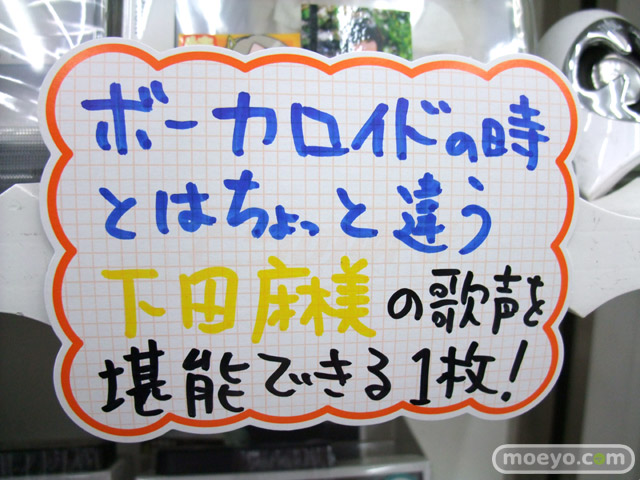 ボーカロイドの時
とはちょっと違う
下田麻美の歌声を
堪能できる1枚!
moeyo.com